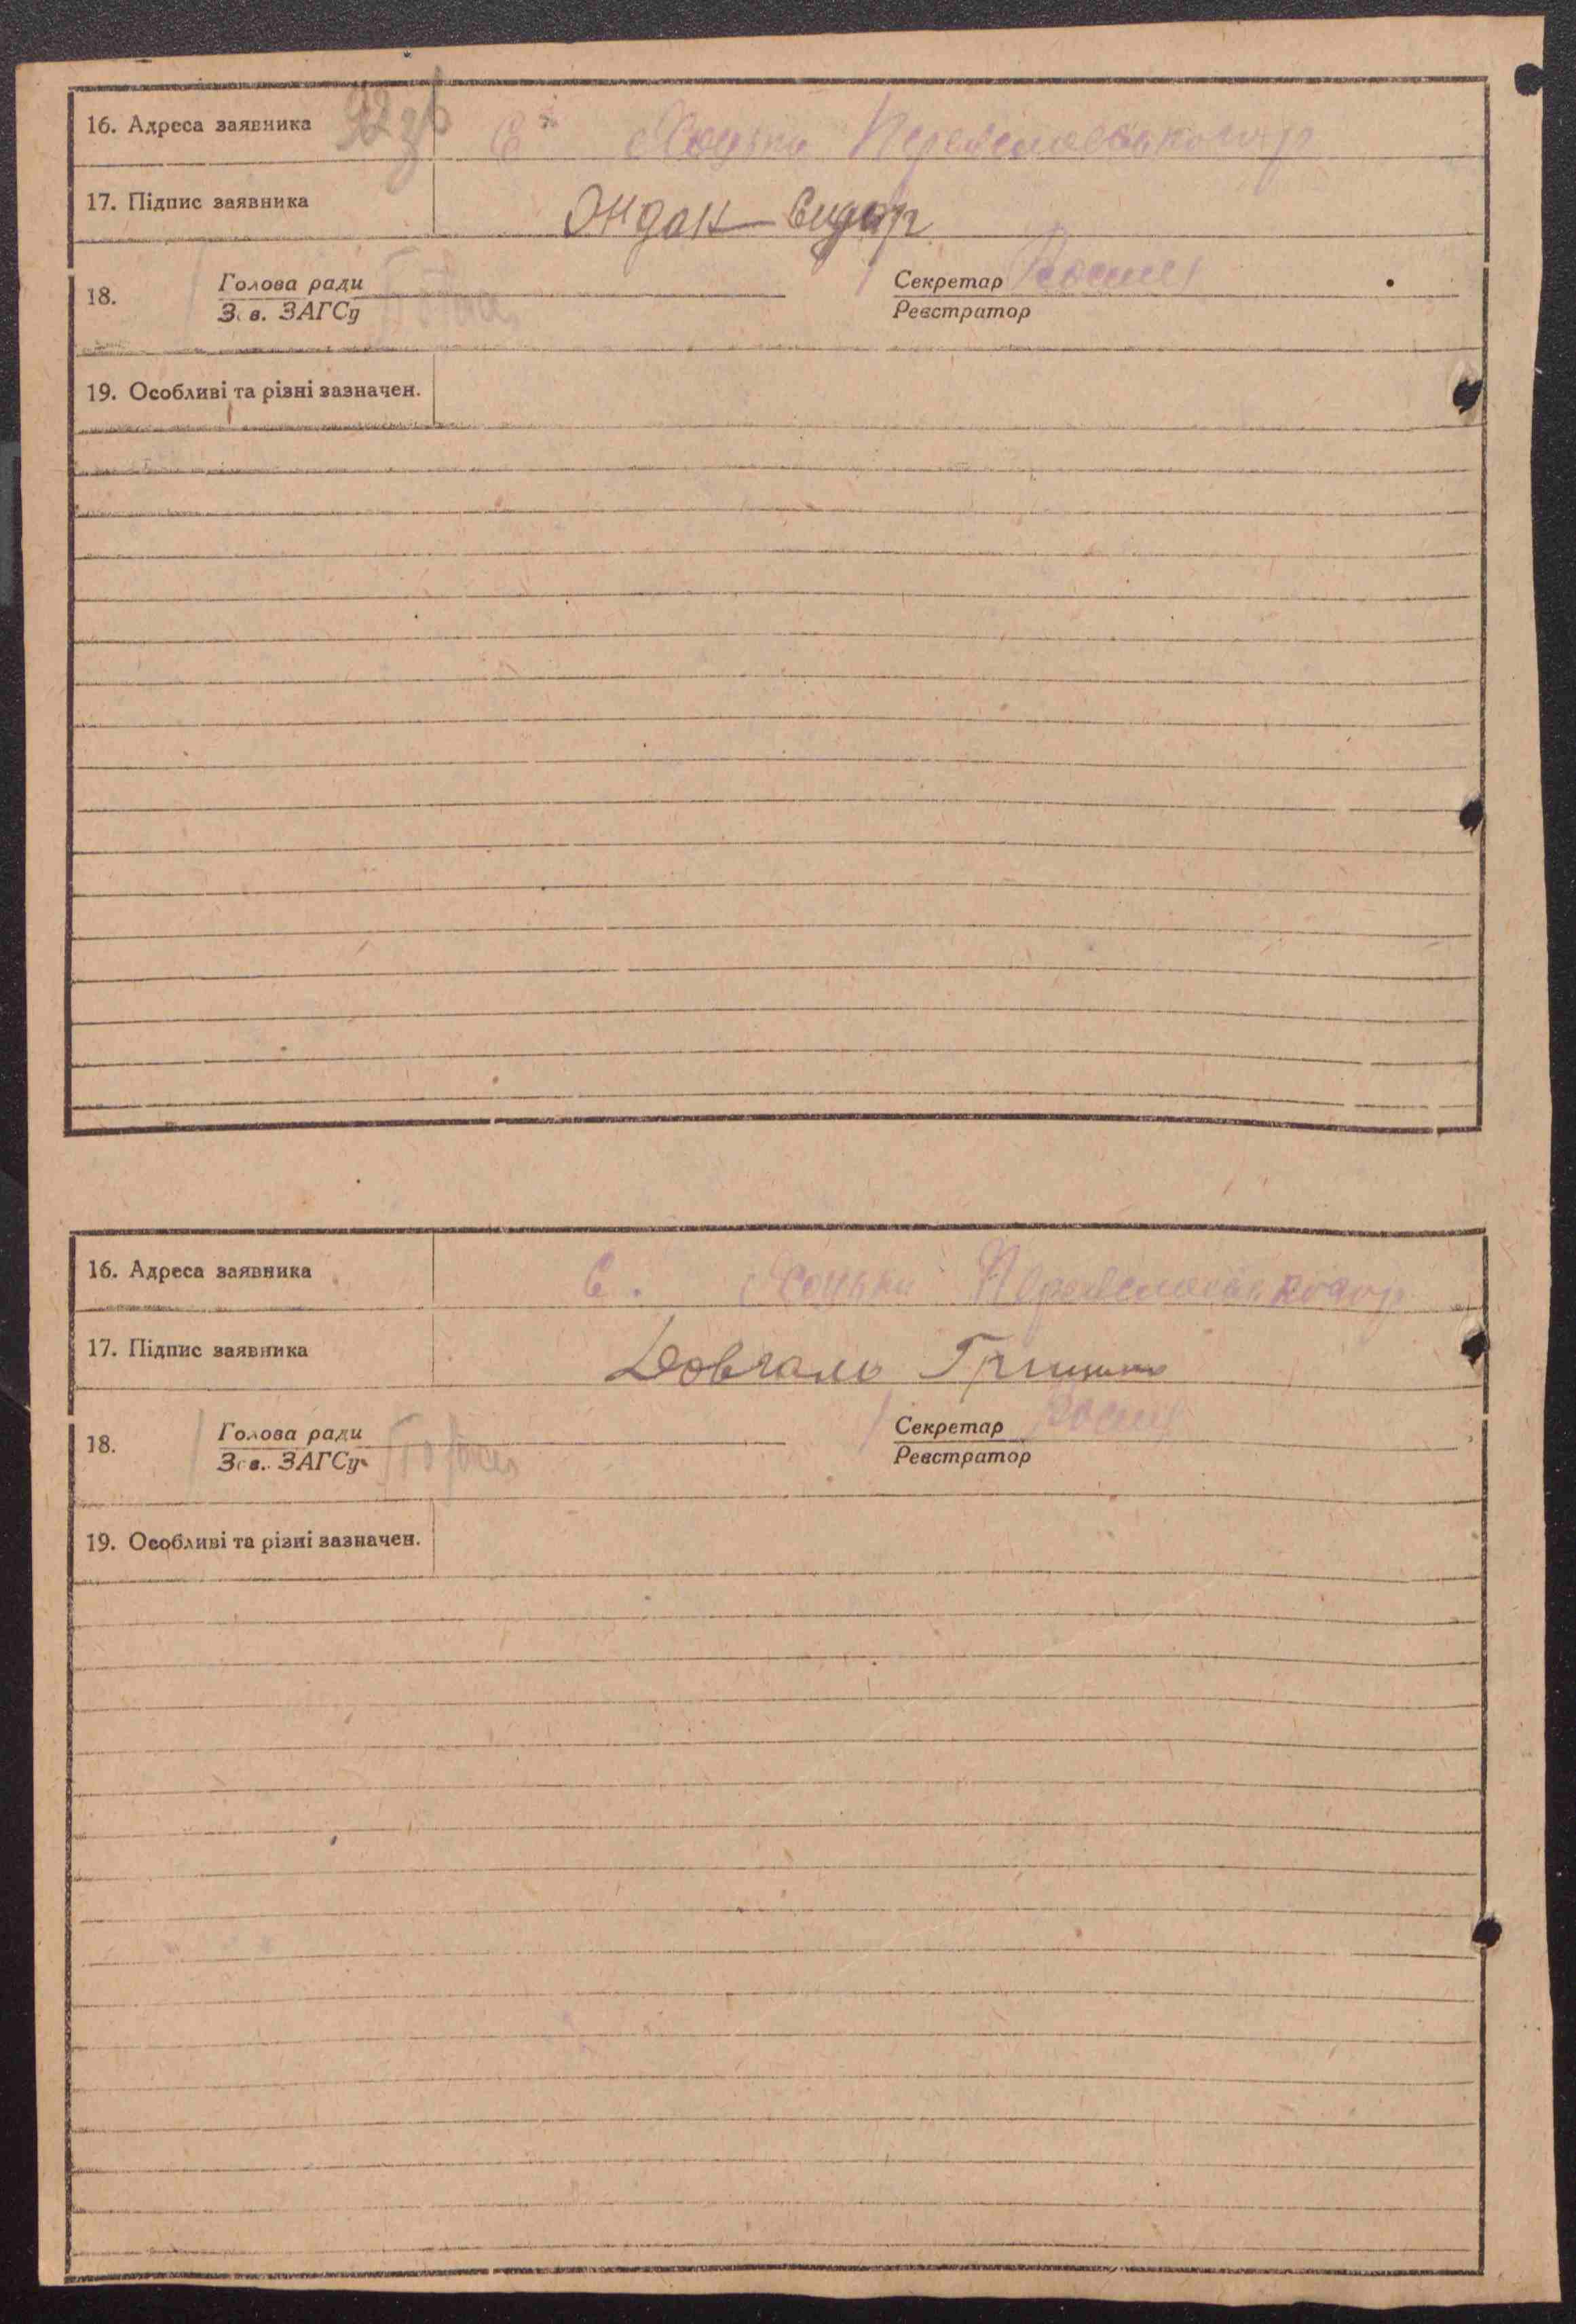 16. Адреса заявника 92 зр С. Хоцьки Переяславськогор
17. Підпис заявника Ондак Сидор
18. Голова ради Секретар
Зав. ЗАГСу Реєстратор
19. Особливі та різні зазначен.
16. Адреса заявника С. Хоцьки Переяславськогор
17. Підпис заявника Довгаль Грицько
18. Голова ради Секретар
Зав. ЗАГСу Реєстратор
19. Особливі та різні зазначен.